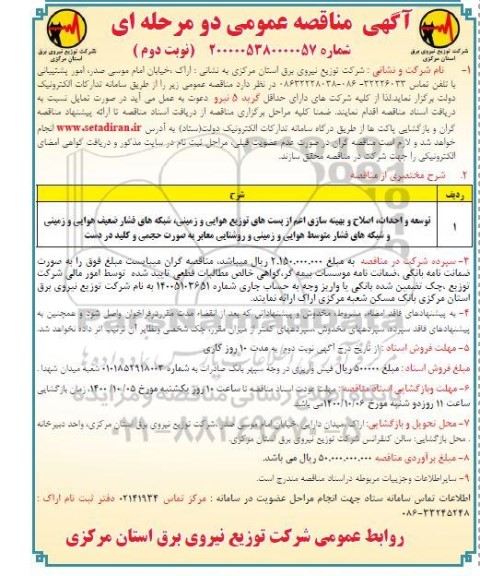 آگهی مناقصه عمومی دو مرحله ای
شماره ۲۰۰۰۰۰۵۳۸۰۰۰۰۰۵۷ (نوبت دوم)
شرکت توزیع نیروی برق استان مرکزی
شرکت توزیع نیروی برق استان مرکزی
۱- نام شرکت و نشانی : شرکت توزیع نیروی برق استان مرکزی به نشانی : اراک ،خیابان امام موسی صدر، امور پشتیبانی
با تلفن تماس ۳۲۲۲۶۰۳۳-۰۸۶ ۰۸۶۳۳۲۲۸۰۳۸ در نظر دارد مناقصه عمومی زیر را از طریق سامانه تدارکات الکترونیک
دولت برگزار نماید.لذا از کلیه شرکت های دارای حداقل گرید ۵ نیرو دعوت به عمل می آید در صورت تمایل نسبت به
دریافت اسناد مناقصه اقدام نمایند. ضمنا کلیه مراحل برگزاری مناقصه از دریافت اسناد مناقصه تا ارائه پیشنهاد مناقصه
گران و بازگشایی پاکت ها از طریق درگاه سامانه تدارکات الکترونیک دولت(ستاد) به آدرس www.setadiran.ir انجام
خواهد شد و لازم است مناقصه گران در صورت عدم عضویت قبلی، مراحل ثبت نام در سایت مذکور و دریافت گواهی امضای
الکترونیکی را جهت شرکت در مناقصه محقق سازند.
۲. شرح مختصری از مناقصه
ردیف شرح
۱ توسعه و احداث، اصلاح و بهینه سازی اعم از پست های توزیع هوایی و زمینی، شبکه های فشار ضعیف هوایی و زمینی
و شبکه های فشار متوسط هوایی و زمینی و روشنایی معابر به صورت حجمی و کلید در دست
۳- سپرده شرکت در مناقصه به مبلغ ۲.۱۵۰.۰۰۰.۰۰۰ ریال میباشد، مناقصه گران میبایست مبلغ فوق را به صورت
ضمانت نامه بانکی ،ضمانت نامه موسسات بیمه گر،گواهی خالص مطالبات قطعی تایید شده توسط امور مالی شرکت
توزیع ،چک تضمین شده بانکی یا واریز وجه به حساب جاری شماره ۱۴۰۰۵۱۰۳۶۵۱ به نام شرکت توزیع نیروی برق
استان مرکزی بانک مسکن شعبه مرکزی اراک ارائه نمایند.
۴- به پیشنهادهای فاقد امضاء، مشروط، مخدوش و پیشنهاداتی که بعد از انقضاء مدت مقرردرفراخوان واصل شود و همچنین به
پیشنهادهای فاقد سپرده، سپردهای مخدوش، سپردهای کمتر از میزان مقرر، چک شخصی ونظایر آن ترتیب اثر داده نخواهد شد.
۵- مهلت فروش اسناد : از تاریخ درج آگهی نوبت دوم، به مدت ۱۰ روز کاری
مبلغ فروش اسناد : مبلغ ۵۰۰۰۰۰ ریال فیش واریزی در وجه سپهر بانک صادرات به شماره ۰۱۰۱۸۵۲۹۱۸۰۰۳ شعبه میدان شهدا .
۶- مهلت وبازگشایی اسناد مناقصه: مهلت عودت اسناد مناقصه تا ساعت ۱۰ روز یکشنبه مورخ ۱۴۰۰/۱۰/۰۵ زمان بازگشایی
ساعت ۱۱ روزدو شنبه مورخ ۱۴۰۰/۱۰/۰۶ می باشد
۷- محل تحویل و بازگشایی: اراک، میدان دارایی، خیابان امام موسی صدر ،شرکت توزیع نیروی برق استان مرکزی، واحد دبیرخانه
. محل بازگشایی: سالن کنفرانس شرکت توزیع نیروی برق استان مرکزی.
۸- مبلغ برآوردی مناقصه ۵۰.۰۰۰.۰۰۰.۰۰۰ ریال می باشد.
۹- سایراطلاعات وجزییات مربوطه دراسناد مناقصه مندرج است.
اطلاعات تماس سامانه ستاد جهت انجام مراحل عضویت در سامانه : مرکز تماس ۰۲۱۴۱۹۳۴ دفتر ثبت نام اراک :
۰۸۶-۳۳۲۴۵۲۴۸
روابط عمومی شرکت توزیع نیروی برق استان مرکزی